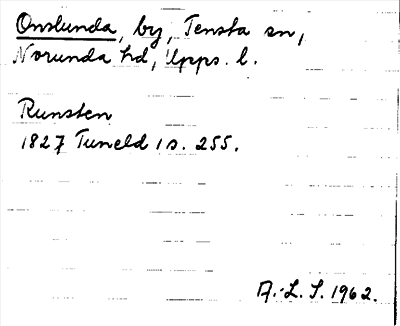 Onslunda, by, Tensta sn,
Norunda hd, Upps. l.
Runsten
1827 Tuneld 1 s. 255.
A.-L. S. 1962.